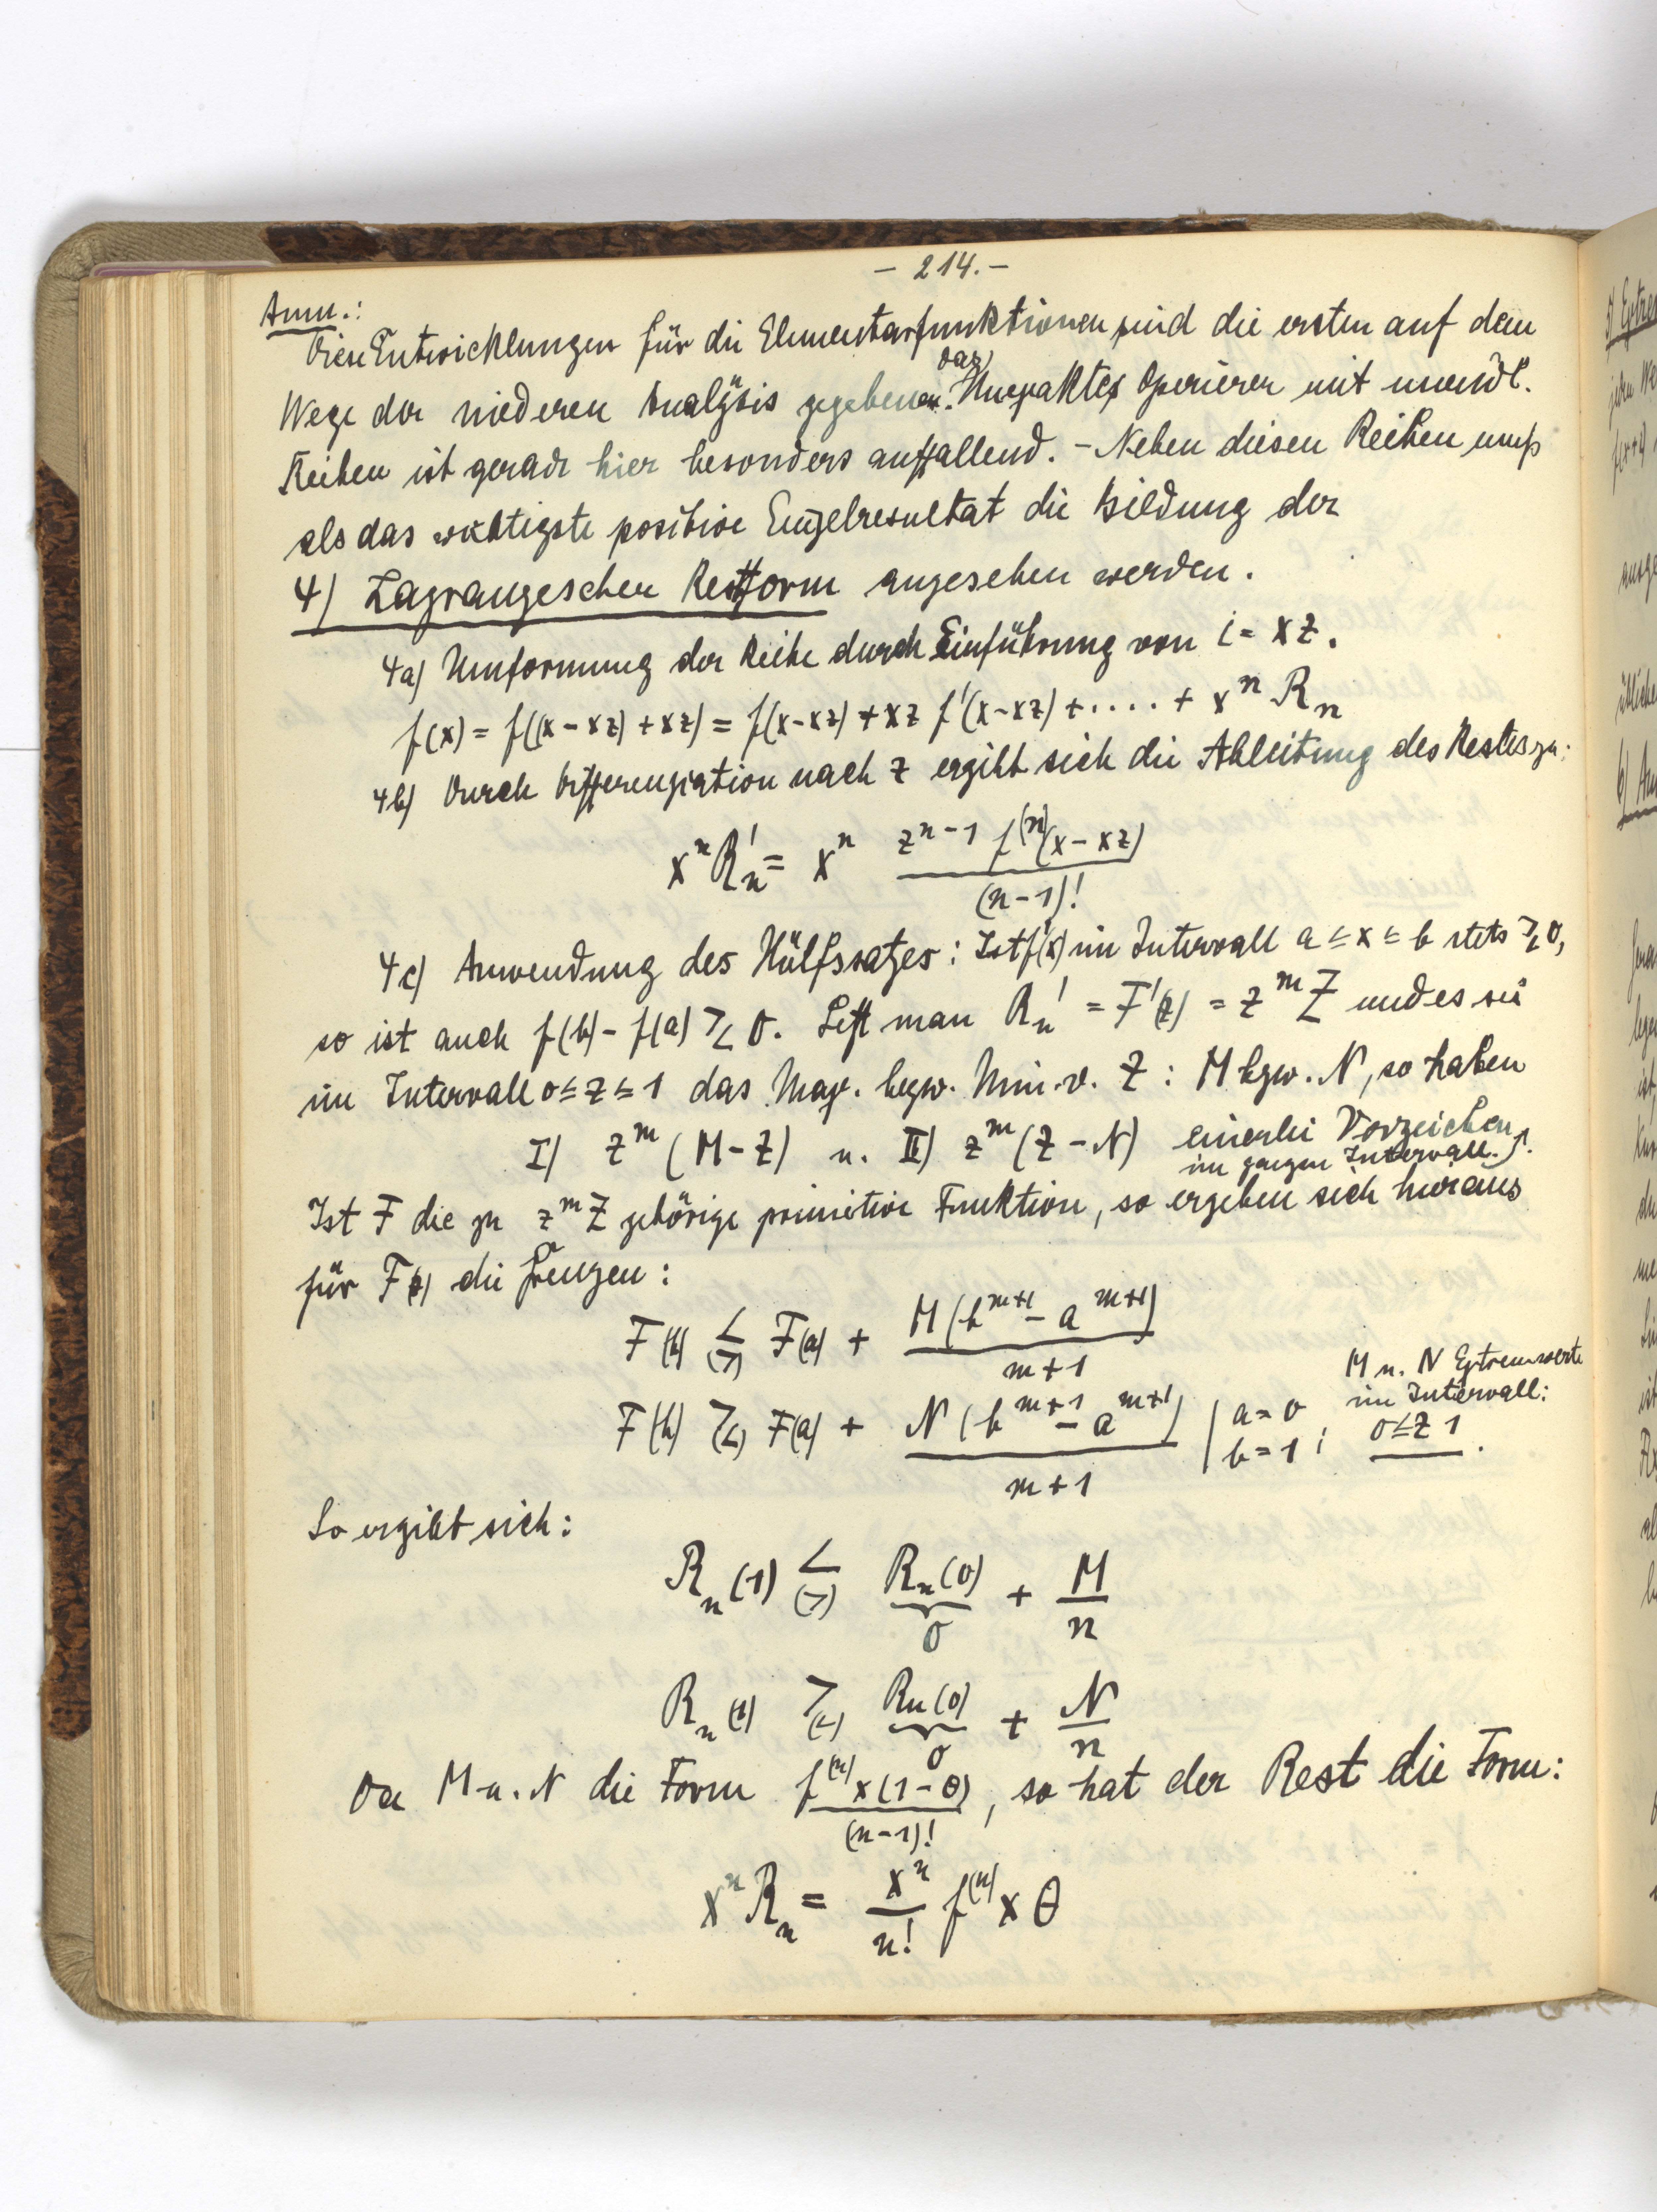 - 214. -
Anm.:
Diese Entwicklungen für die Elementarfunktionen sind die ersten auf dem
Wege der niederen Analysis gegebenen. Das unexakte Operieren mit unendl.
Reihen ist gerade hier besonders auffallend. - Neben diesen Reihen muß
als das wichtigste positive Einzelresultat die Bildung der
4) Lagrangeschen Restform angesehen werden.
4a) Umformung der Reihe durch Einführung von i = xz.
f(x) = f((x-xz)+xz) = f(x-xz) + xz f'(x-xz) + ..... + x^n R_n
4b) Durch Differenziation nach z ergibt sich die Ableitung des Restes zu:
x^n R_n' = x^n z^{n-1} f^{(n)}(x-xz) / (n-1)!
4c) Anwendung des Hülfssatzes: Ist f'(x) im Intervall a ≤ x ≤ b stets ≷ 0,
so ist auch f(b) - f(a) ≷ 0. Setzt man R_n' = F'(z) = z^m Z und es sei
im Intervall 0 ≤ z ≤ 1 das Max. bezw. Min. v. Z : M bzw. N, so haben
I) z^m (M-Z) u. II) z^m (Z-N) einerlei Vorzeichen
im ganzen Intervall.
Ist F die zu z^m Z gehörige primitive Funktion, so ergeben sich hieraus
für F(z) die Grenzen:
F(b) ≤ (>) F(a) + M(b^{m+1} - a^{m+1}) / m+1
F(b) ≥ (<) F(a) + N(b^{m+1} - a^{m+1}) / m+1 | a=0 b=1 ;
M u. N Extremwerte
im Intervall:
0 ≤ z 1.
So ergibt sich:
R_n(1) < (>) R_n(0) + M/n
0
R_n(1) > (<) R_n(0) + N/n
0
Da M u. N die Form f^{(n)} x(1-θ) / (n-1)!, so hat der Rest die Form:
x^n R_n = x^n / n! f^{(n)} x θ